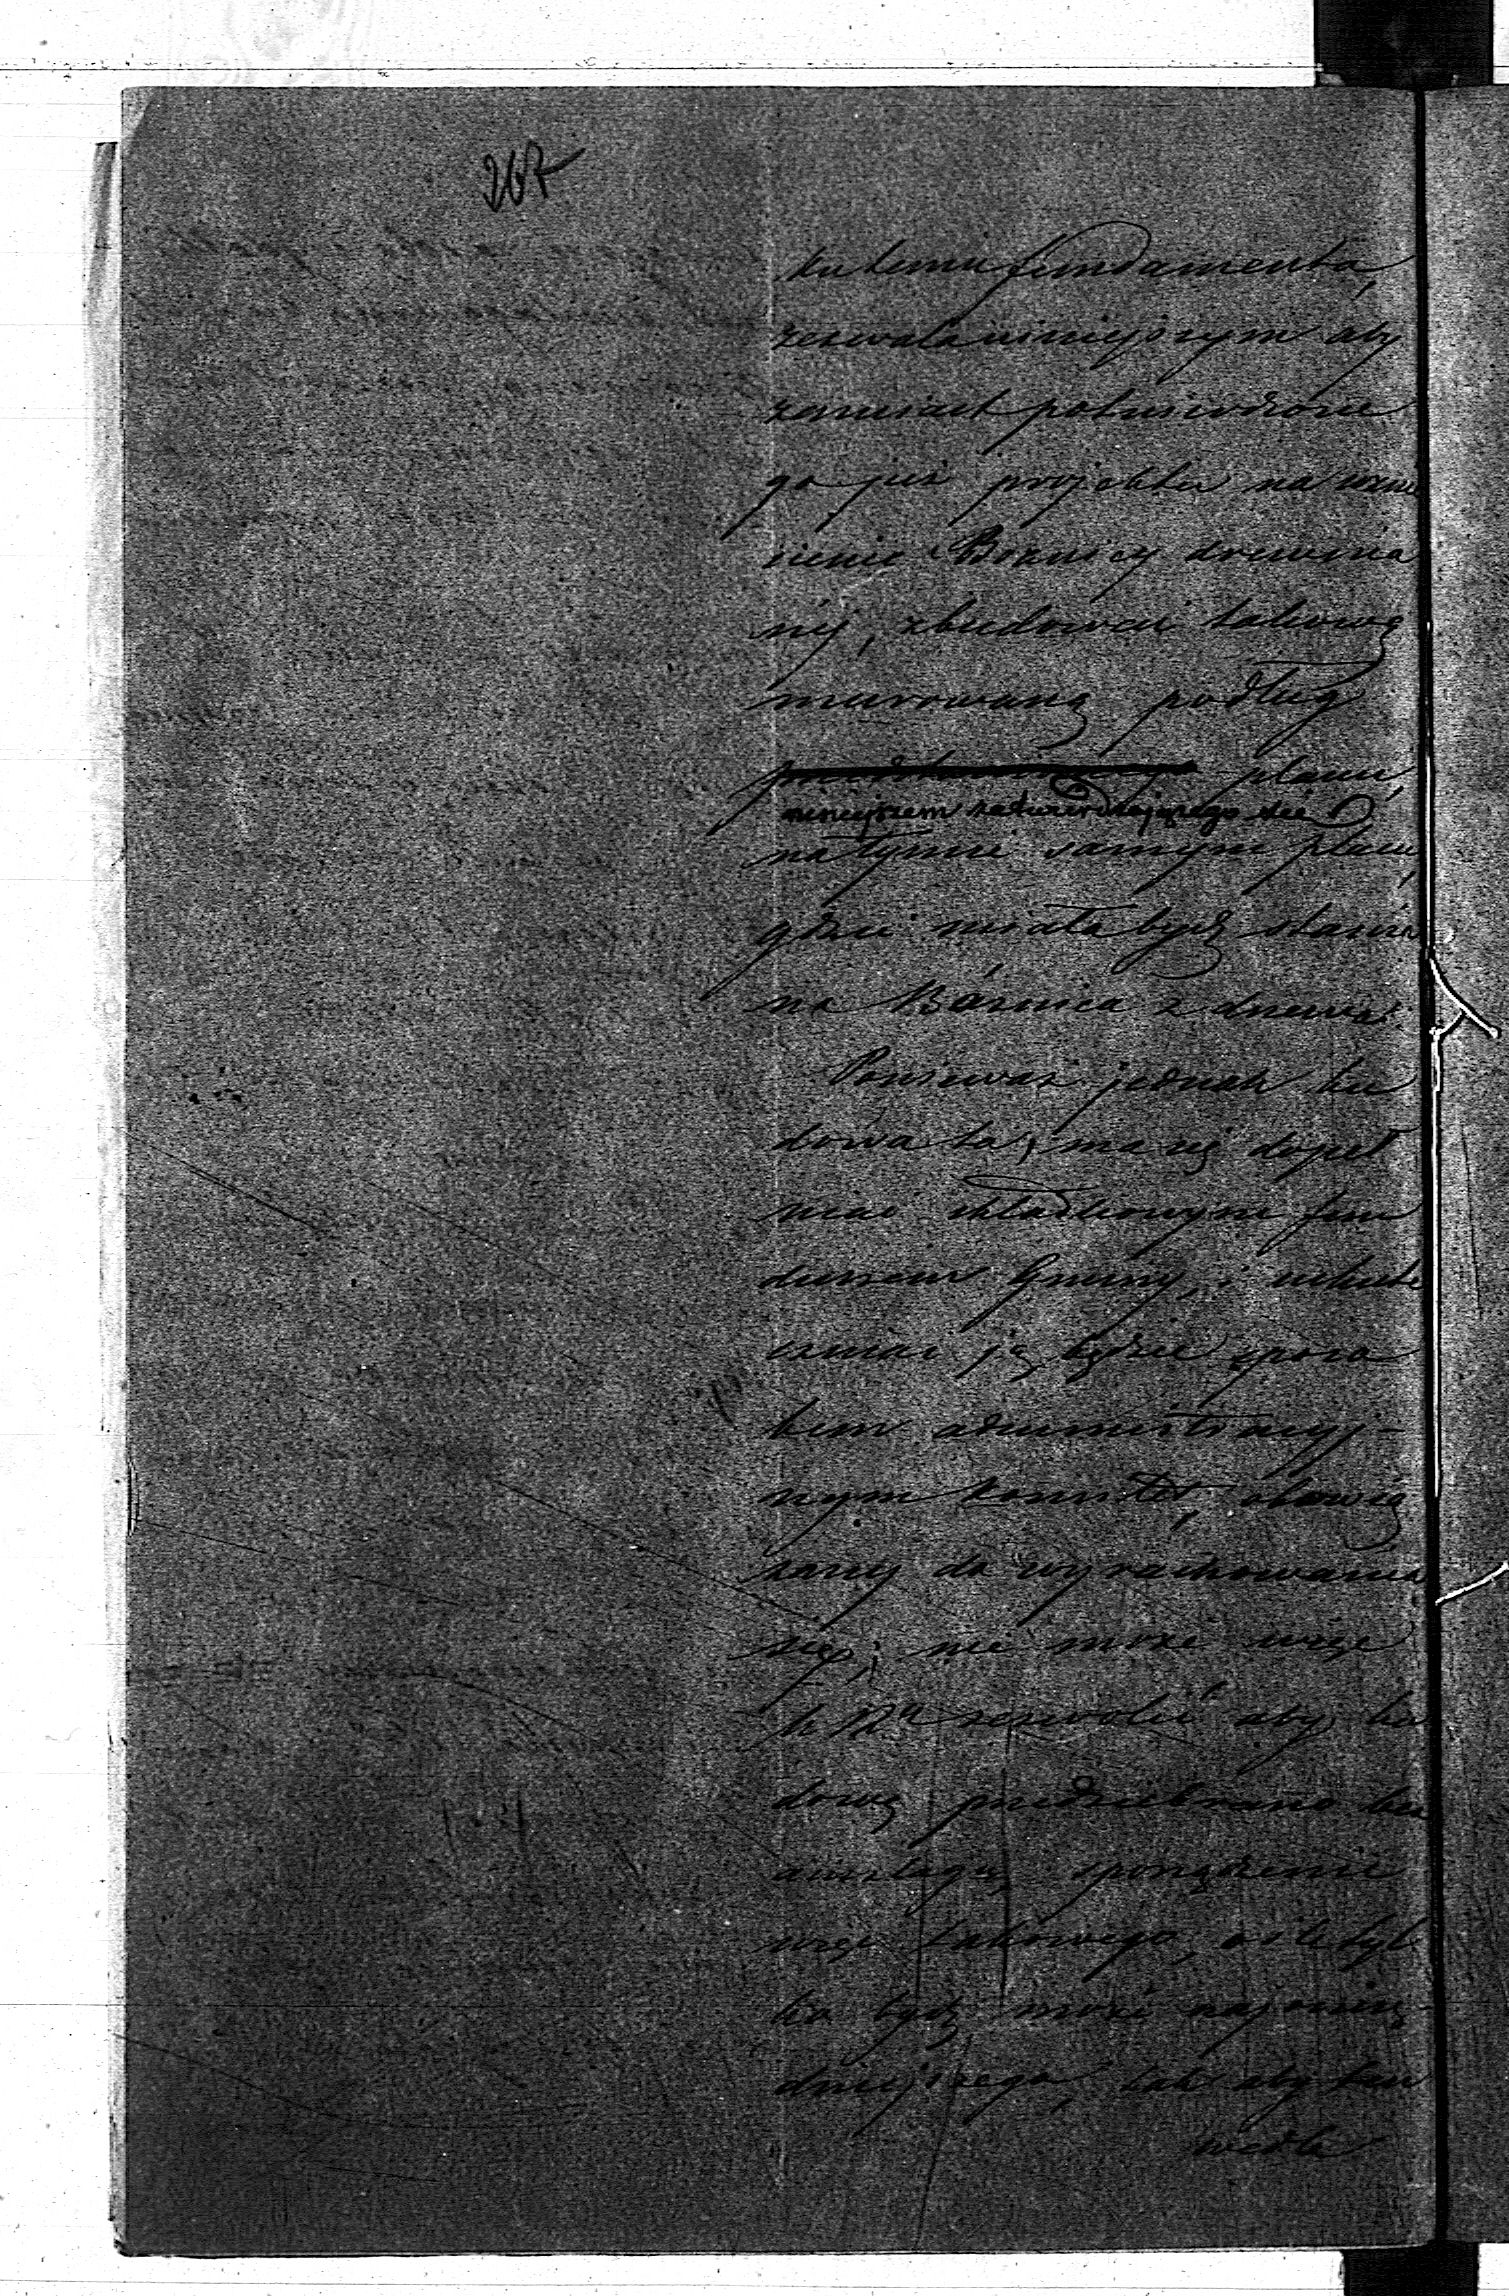 267
ku temu fundamenta,
zezwala niniejszym aby
zamiast potwierdzone
go już projektu na wznie
sienie Bożnicy drewnia
nej, zbudować takową
murowaną podług
planu,
niniejszem zatwierdzającego się
na tymże samym placu,
gdzie miała bydź stawia
na Bóżnica z drzewa.
Ponieważ jednak bu
dowa ta, ma się dopeł
niać składkowym fun
duszem Gminy, i uskute
czniać ją będzie sposo
bem administracyj-
nym Komitet, obowią
zany do wyrachowania
się; nie może więc
K R zezwolić aby bu
dowę przedsiebrano bez
anszlagu, sporządzenie
więc takowego, o ile tyl
ko bydź może najoszczę
dniejszego, tak aby bu
wedle